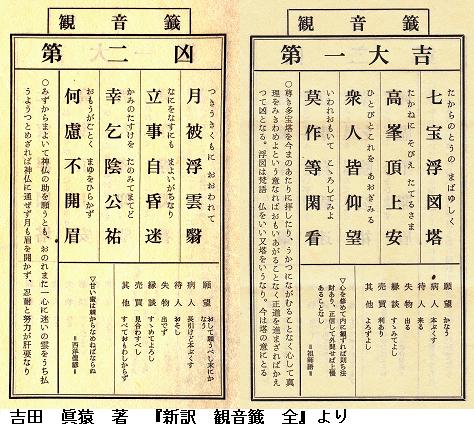 観音籤
第一大吉
たからのとうの まばゆしく
七宝浮図塔
たかねに そびえ たてるさま
高峯頂上安
ひとびとこれを あおぎみる
衆人皆仰望
いわれおもいて こゝろしてみよ
莫作等閑看
○尊き多宝塔を今まのあたりに拝したり、うかつにながむることなく心して真
理をみきわめよという意なればおもいあがることなく正道を進まざればかえ
つて凶となる。浮図は梵語 仏をいい又塔をいうなり。今は塔の意にとる
願望 かなう
病人 本ぷくす
待人 来る
失物 出る
縁談 すゝめてよし
売買 利あり
其他 よろずよし
▽心を修めて内に観ずれば則ち法
財あり、正信して外聞せば上慢
あることなし
＝祖師語＝
観音籤
第二凶
つきうきくもに おおわれて
月被浮雲翳
なにをなすにも まよいがちなり
立事自昏迷
かみのたすけを たのみてまてど
幸乞陰公祐
おもうがごとく まゆをひらかず
何慮不開眉
○みずからまよいて神仏の助を願うとも、おのれまた一心に迷いの雲をうち払
うようつとめざれば神仏に通ぜず月も眉を開かず、忍耐と努力が肝要なり
願望 おして願うべし末にかなう
病人 長引けど本ぷくす
待人 おそし
失物 出でず
縁談 すゝめてよろし
売買 見合わすべし
其他 すべておもわしからず
▽甘い蜜は棘からなめねばならぬ
＝西洋俚諺＝
吉田 眞猿 著 『新訳 観音籤 全』より